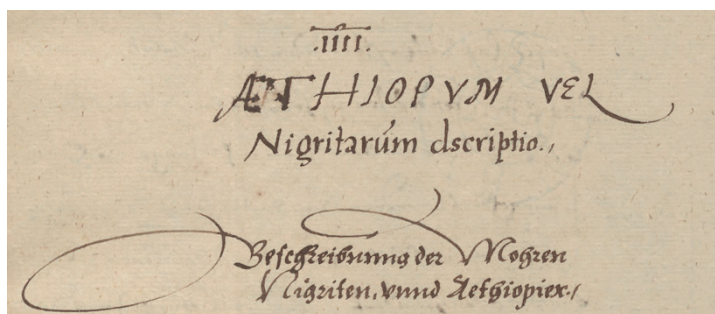 .IIII.
ÆTHIOPVM VEL
Nigritarúm dscriptio.,
Beschreibunng der Mohren
Nigriten, vnnd Aethiopier.,